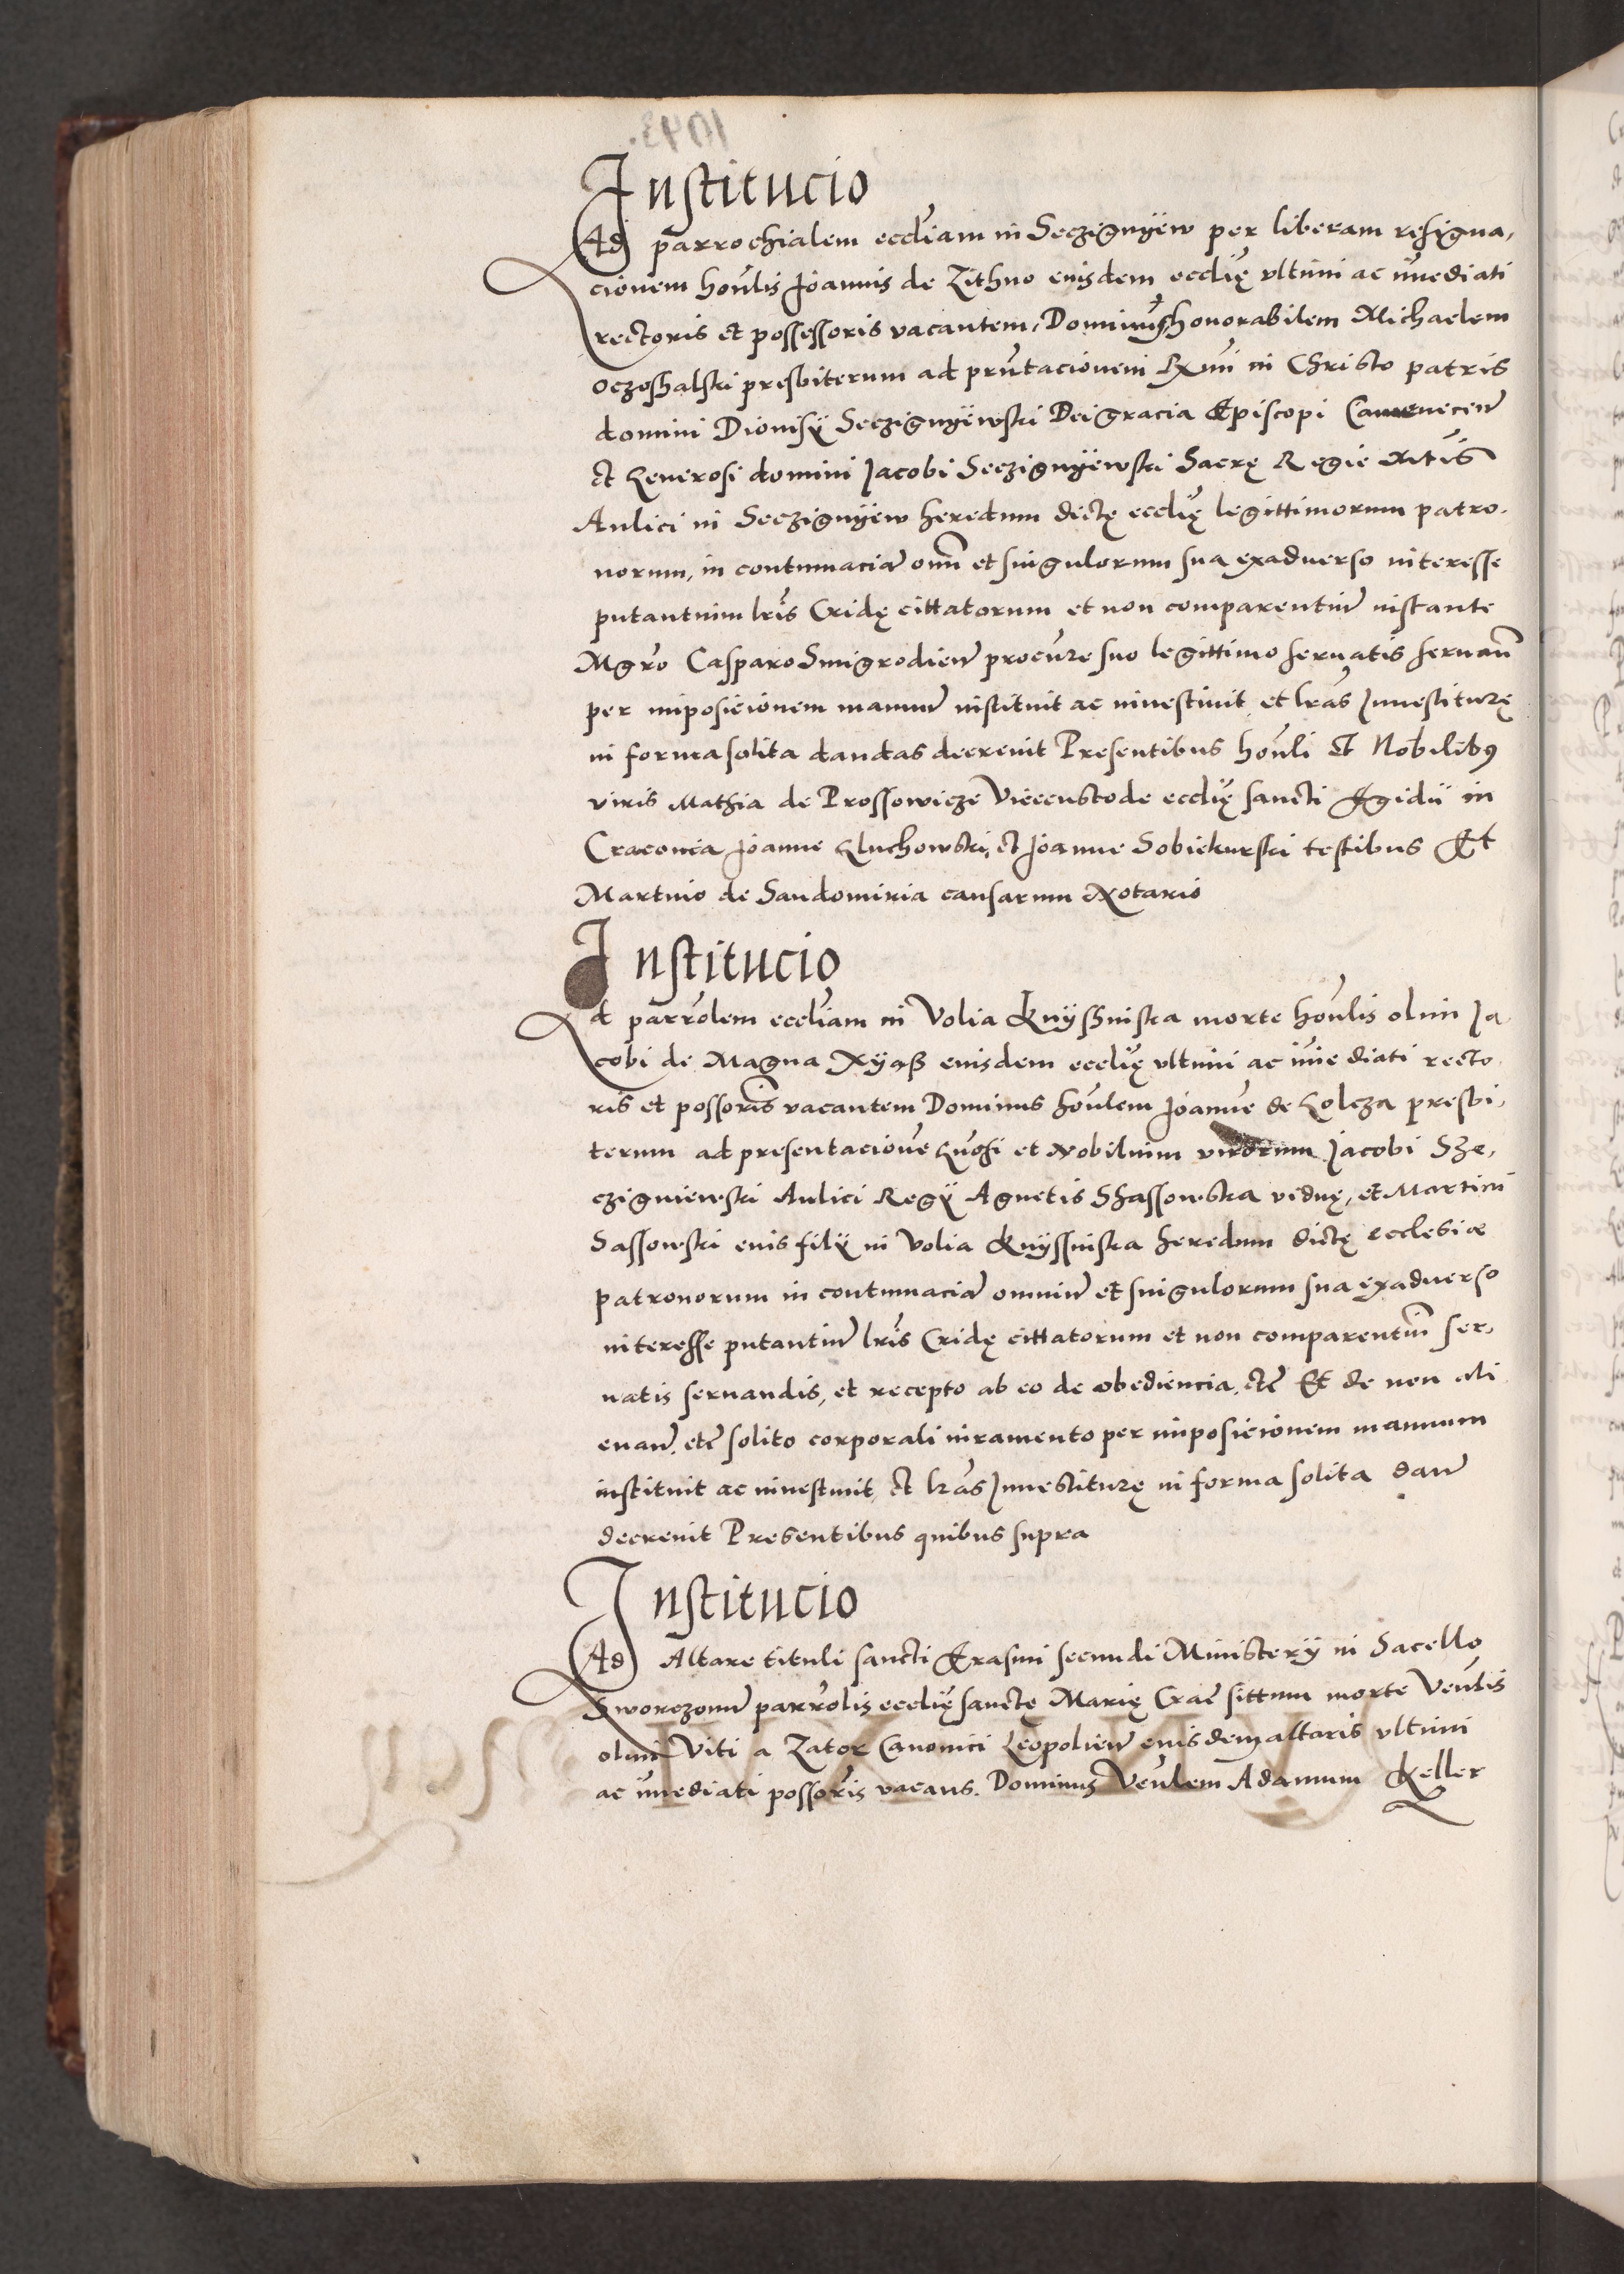 Institucio
Ad parrochialem eccliam in Seczignyew per liberam resigna,
cionem honlis Joannis de Zithno eiusdem ecclię vltimi ac imediati
rectoris et possessoris vacantem, Dominus honorabilem Michaelem
presbiterum ad pntacionem Rxmi in Christo patris
domini Dionisÿ Seczignyewski Dei gracia Episcopi Camenecen
et Generosi domini Jacobi Seczignyewski Sacrę Regie Mtis
Aulici in Seczignyew heredum dictę ecclię legittimorum patro,
norum, in contumacia omn et singulorum sua exaduerso interesse
putantium lris Cridę cittatorum et non comparentiu instante
Mgro Casparo Smigrodien procure suo legittimo seruatis seruan
per imposicionem manuu instituit ac inuestiuit et lras Inuestiturę
in forma solita dandas decreuit Presentibus honli et Nobilibus
viris Mathia de Prossowicze Vicecustode ecclię sancti Egidii in
Cracouia Joanne Gluchowski, et Joanne Sobiekurski testibus Et
Martino de Sandomiria causarum Notario
Institucio
Ad parrolem eccliam in Volia Knyssinska morte honlis olim Ja,
cobi de Magna eiusdem ecclię vltimi ac imediati recto,
ris et possoris vacantem Dominus honlem Joanne de Golcza presbi,
terum ad presentacione Gnosi et Nobilium virorum Jacobi Sze,
czigniewski Aulici Regÿ Agnetis Shassowska viduę, et Martini
Sassowski eius filÿ in Volia Knyssinska heredum dictę ecclesiæ
patronorum in contumacia omniu et singulorum sua exaduerso
interesse putantiu lris Cridę cittatorum et non comparentiu ser,
uatis seruandis, et recepto ab eo de obediencia, etc Et de non ali
enan, etc solito corporali iuramento per imposicionem manuum
instituit ac inuestiuit, et lras Inuestiturę in forma solita dan
decreuit Presentibus quibus supra
Institucio
Ad Altare tituli sancti Erasmi secundi Ministerÿ in Sacello
Sworczonu parrolis ecclię sanctę Marię Crac sittum morte Venlis
olim Viti a Zator Canonici Leopolien eiusdem altaris vltimi
ac imediati possoris vacans. Dominus Venlem Adamum Keller